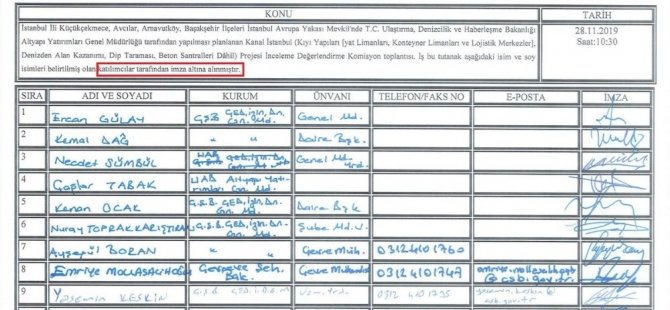 KONU TARİH
İstanbul İli Küçükçekmece, Avcılar, Arnavutköy, Başakşehir İlçeleri İstanbul Avrupa Yakası Mevkii'nde T.C. Ulaştırma, Denizcilik ve Haberleşme Bakanlığı
Altyapı Yatırımları Genel Müdürlüğü tarafından yapılması planlanan Kanal İstanbul (Kıyı Yapıları [yat Limanları, Konteyner Limanları ve Lojistik Merkezler],
Denizden Alan Kazanımı, Dip Taraması, Beton Santralleri Dâhil) Projesi İnceleme Değerlendirme Komisyon toplantısı. İş bu tutanak aşağıdaki isim ve soy
isimleri belirtilmiş olan katılımcılar tarafından imza altına alınmıştır.
28.11.2019
Saat:10:30
SIRA ADI VE SOYADI KURUM ÜNVANI TELEFON/FAKS NO E-POSTA İMZA
1 Ercan GÜLAY GŞB GED, İzin, Dn. Gn. Md. Genel Md.
2 Kemal DAĞ " " Daire Bşk.
3 Necdet SÜMBÜL UAB Genel Md. Yrd.
4 Çağlar TABAK UAB Altyapı Yatırımları Gn. Md.
5 Kenan OCAK G.S.B. GED, İzn. Dn. Gn. Md. Daire Bşk
6 Nuray TOPRAKKARIŞTIRAN G.S.B. GED, İzn. Dn. Gn. Md. Şube Md. V.
7 Ayşegül BORAN " " Çevre Müh. 0312 410 1760
8 Emriye MOLLASALİHOĞLU Çevre ve Şeh. Bak. Çevre Mühendisi 0312 410 1749
9 Yasemin KESKİN Uzm. Yrd. 0312 410 1735